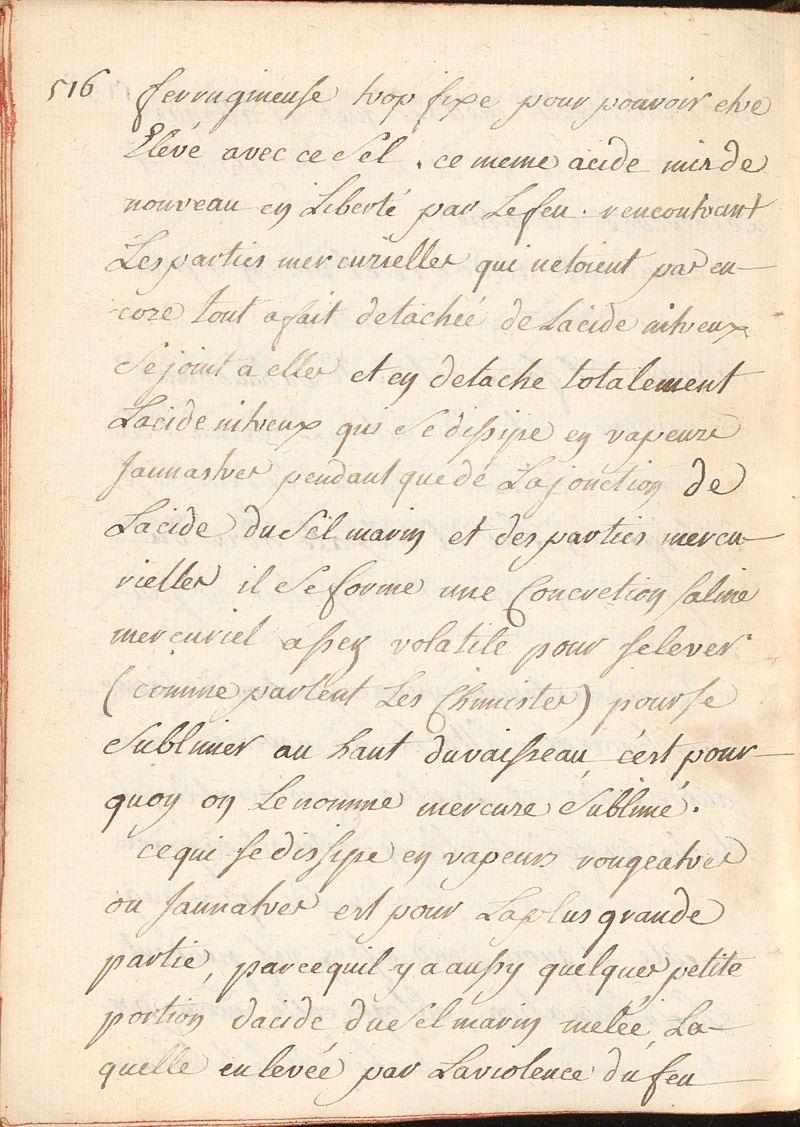 516 ferrugineuse trop fixe pour pouvoir etre
Elévé avec ce Sel. ce meme acide mis de
nouveau en Liberté par Le feu. rencontrant
Les parties mercurielles qui netoient pas en-
core tout afait detachéé de Lacide nitreux
Se joint a elles et en detache totalement
Lacide nitreux qui Se dissipe en vapeurs
Jaunastres pendant que de La jonction de
Lacide du Sel marin et des parties mercu-
rielles il Se forme une Concretion saline
mercuriel assez volatile pour selever
(comme parlent Les Chimistes) pour se
Sublimer au haut du vaisseau, c'est pour-
quoy on Le nomme mercure Sublimé.
ce qui se dissipe en vapeurs rougeatres
ou Jaunatres est pour La plus grande
partie, parcequil y a aussy quelques petite
portion dacide du Sel marin melée, La-
quelle enlevée par La violence du feu